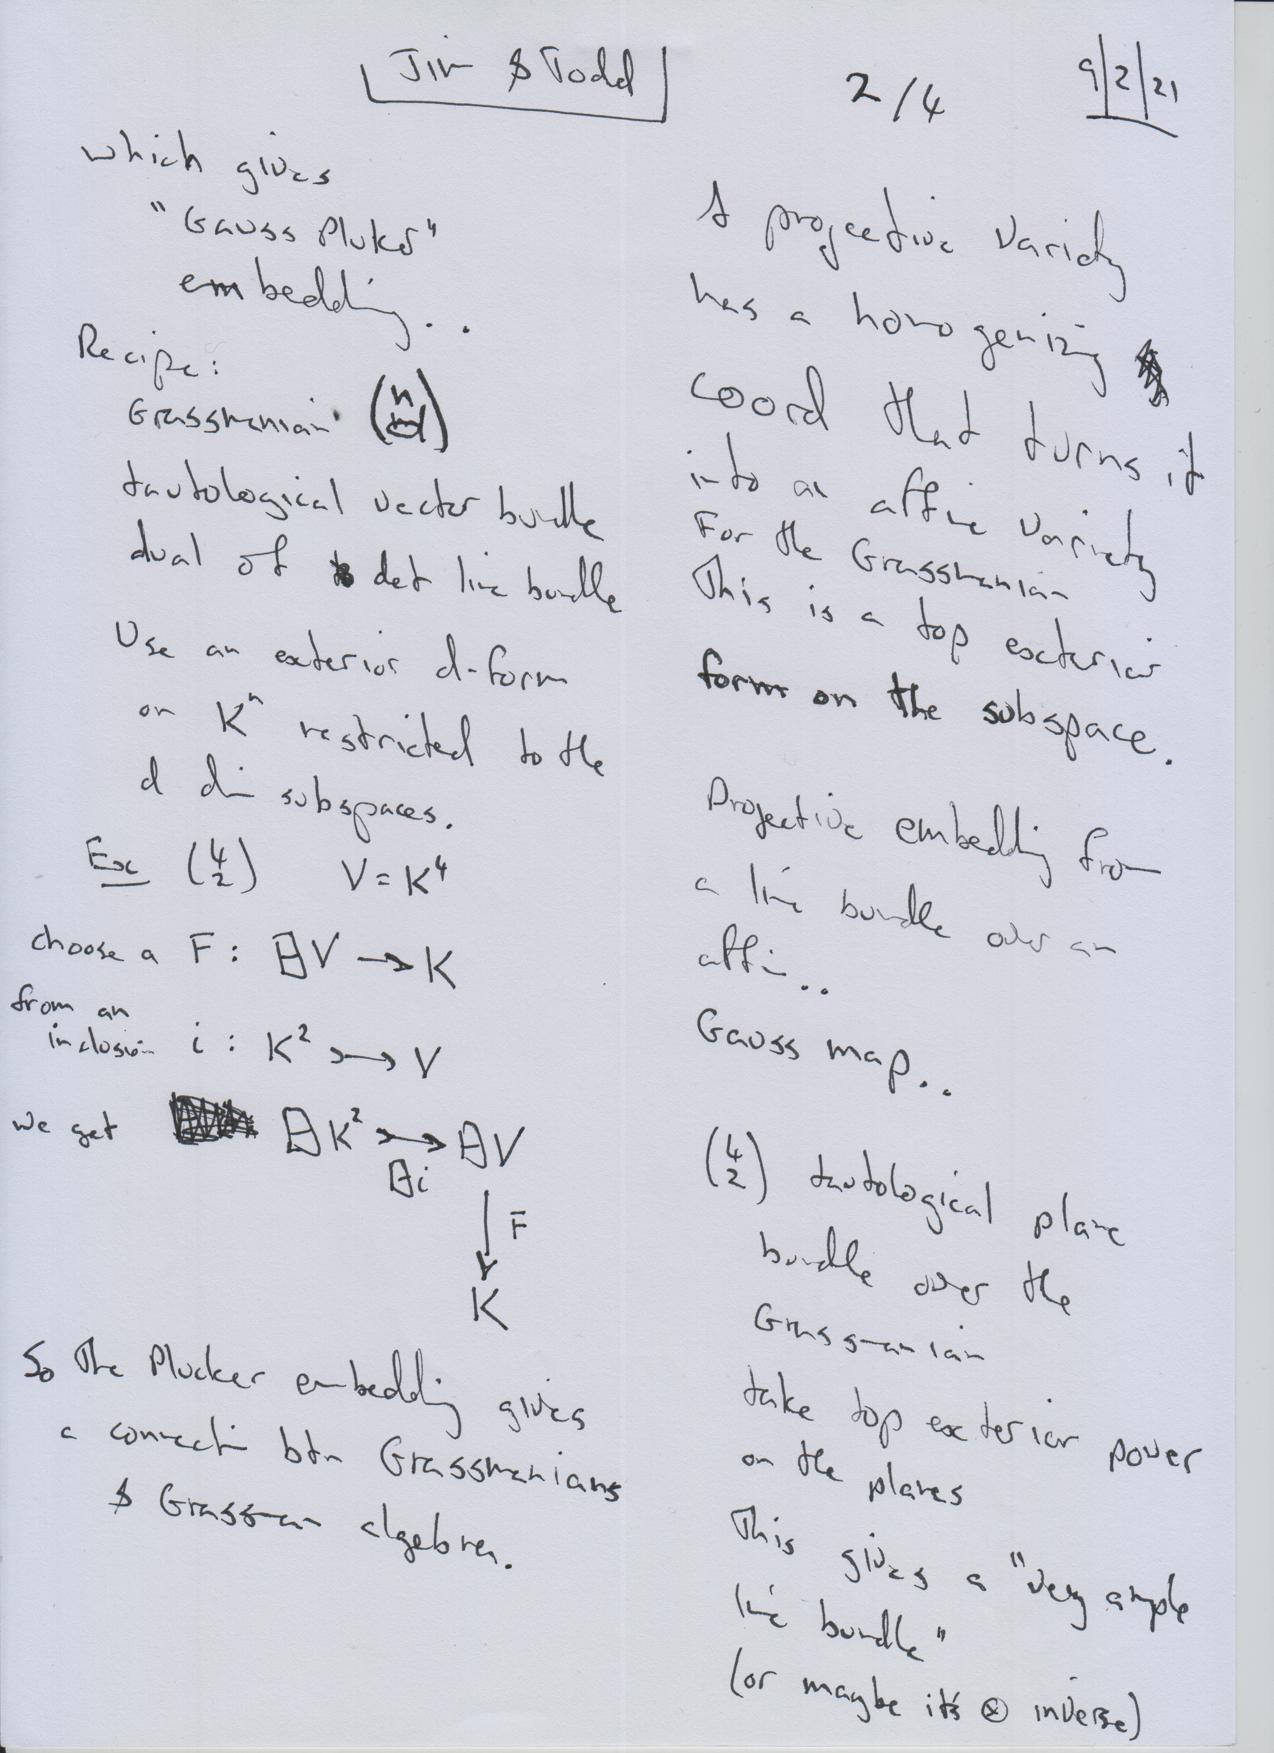 Jim & Todd
2/4
9/2/21
which gives
"Gauss Pluker"
embedding..
Recipe:
Grassmanian (n d)
tautological vector bundle
dual of det line bundle
Use an exterior d-form
on Kⁿ restricted to the
d dim subspaces.
Ex (4 2) V = K⁴
choose a F : ⊟V → K
from an
inclusion i : K² ↣ V
we get ⊟K² ↣ ⊟V
⊟i
F
K
So The Plucker embedding gives
a connecti btn Grassmanians
& Grassman algebra.
A projective variety
has a homogenizing
coord that turns it
into an affine variety
For the Grassmanian
This is a top exterior
form on the subspace.
Projective embedding from
a line bundle over an
affin..
Gauss map..
(4 2) tautological plane
bundle over the
Grassmanian
take top exterior power
on the planes
This gives a "very ample
line bundle"
(or maybe it's ⊗ inverse)